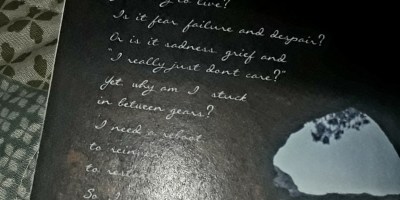 to live?
Is it fear failure and despair?
Or is it sadness grief and
"I really just dont care?"
Yet why am I stuck
in between gears?
I need a reboot
to
to
So I